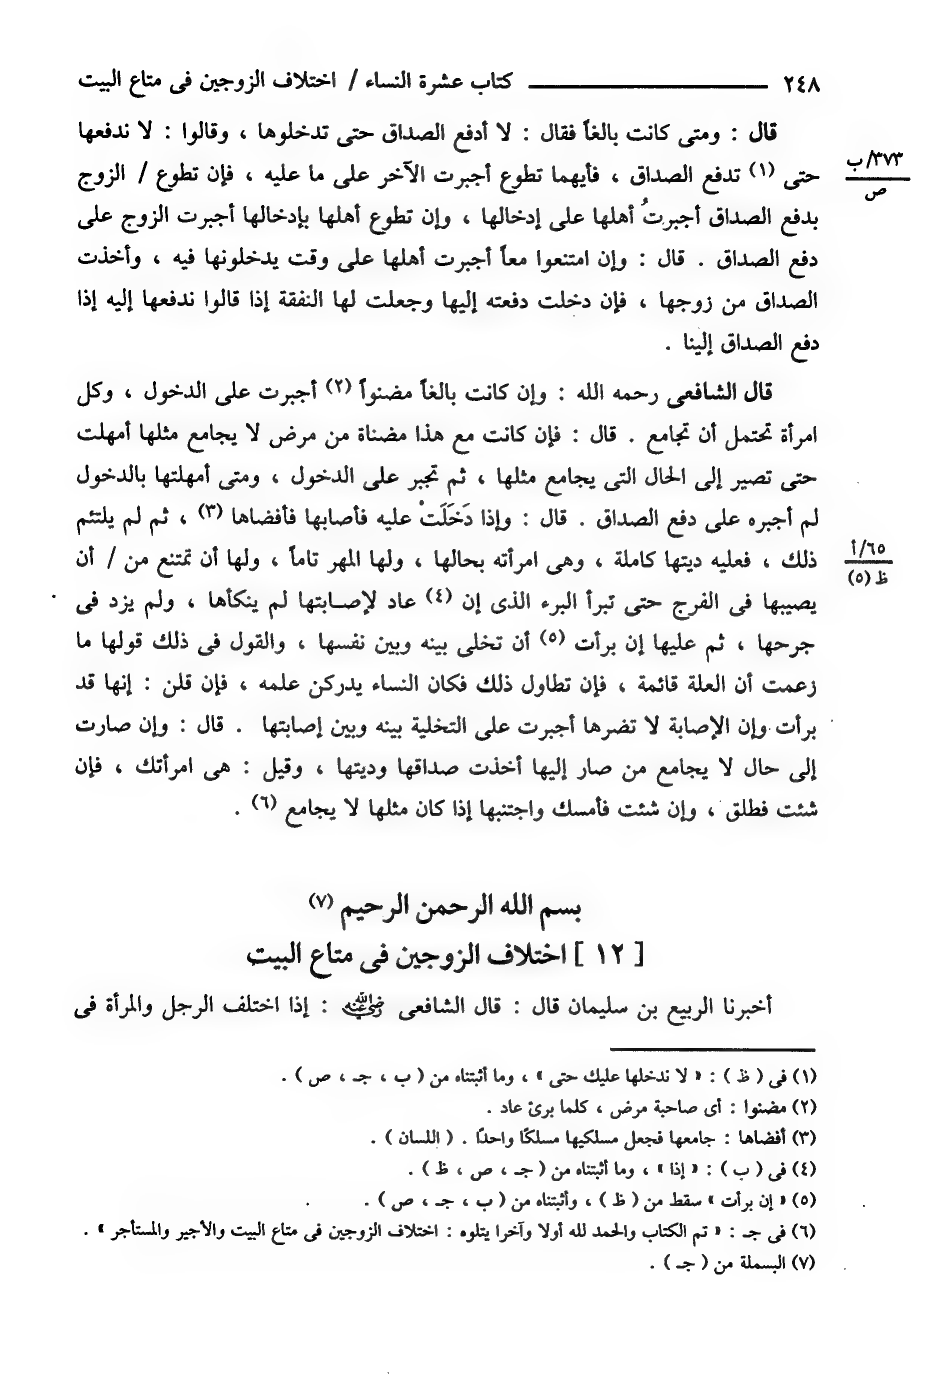 ٢٤٨ ـــــــــــــــــــــ كتاب عشرة النساء / اختلاف الزوجين فى متاع البيت
قال : ومتى كانت بالغاً فقال : لا أدفع الصداق حتى تدخلوها ، وقالوا : لا ندفعها
حتى (١) تدفع الصداق ، فأيهما تطوع أجبرت الآخر على ما عليه ، فإن تطوع / الزوج
٣٧٣/ب
ص
بدفع الصداق أجبرتُ أهلها على إدخالها ، وإن تطوع أهلها بإدخالها أجبرت الزوج على
دفع الصداق . قال : وإن امتنعوا معاً أجبرت أهلها على وقت يدخلونها فيه ، وأخذت
الصداق من زوجها ، فإن دخلت دفعته إليها وجعلت لها النفقة إذا قالوا ندفعها إليه إذا
دفع الصداق إلينا .
قال الشافعى رحمه الله : وإن كانت بالغاً مضنواً (٢) أجبرت على الدخول ، وكل
امرأة تحتمل أن تجامع . قال : فإن كانت مع هذا مضناة من مرض لا يجامع مثلها أمهلت
حتى تصير إلى الحال التى يجامع مثلها ، ثم تجبر على الدخول ، ومتى أمهلتها بالدخول
لم أجبره على دفع الصداق . قال : وإذا دَخَلَتْ عليه فأصابها فأفضاها (٣) ، ثم لم يلتئم
ذلك ، فعليه ديتها كاملة ، وهى امرأته بحالها ، ولها المهر تاماً ، ولها أن تمتنع من / أن
٦٥/أ
ظ (٥)
يصيبها فى الفرج حتى تبرأ البرء الذى إن (٤) عاد لإصابتها لم ينكأها ، ولم يزد فى
جرحها ، ثم عليها إن برأت (٥) أن تخلى بينه وبين نفسها ، والقول فى ذلك قولها ما
زعمت أن العلة قائمة ، فإن تطاول ذلك فكان النساء يدركن علمه ، فإن قلن : إنها قد
برأت وإن الإصابة لا تضرها أجبرت على التخلية بينه وبين إصابتها . قال : وإن صارت
إلى حال لا يجامع من صار إليها أخذت صداقها وديتها ، وقيل : هى امرأتك ، فإن
شئت فطلق ، وإن شئت فأمسك واجتنبها إذا كان مثلها لا يجامع (٦) .
بسم الله الرحمن الرحيم (٧)
[ ١٢ ] اختلاف الزوجين فى متاع البيت
أخبرنا الربيع بن سليمان قال : قال الشافعى رضي الله عنه : إذا اختلف الرجل والمرأة فى
(١) فى ( ظ ) : « لا ندخلها عليك حتى » ، وما أثبتناه من ( ب ، جـ ، ص ) .
(٢) مضنوا : أى صاحبة مرض ، كلما برئ عاد .
(٣) أفضاها : جامعها فجعل مسلكيها مسلكًا واحدًا . ( اللسان ) .
(٤) فى ( ب ) : « إذا » ، وما أثبتناه من ( جـ ، ص ، ظ ) .
(٥) « إن برأت » سقط من ( ظ ) ، وأثبتناه من ( ب ، جـ ، ص ) .
(٦) فى جـ : « تم الكتاب والحمد لله أولا وآخرا يتلوه : اختلاف الزوجين فى متاع البيت والأجير والمستأجر » .
(٧) البسملة من ( جـ ) .